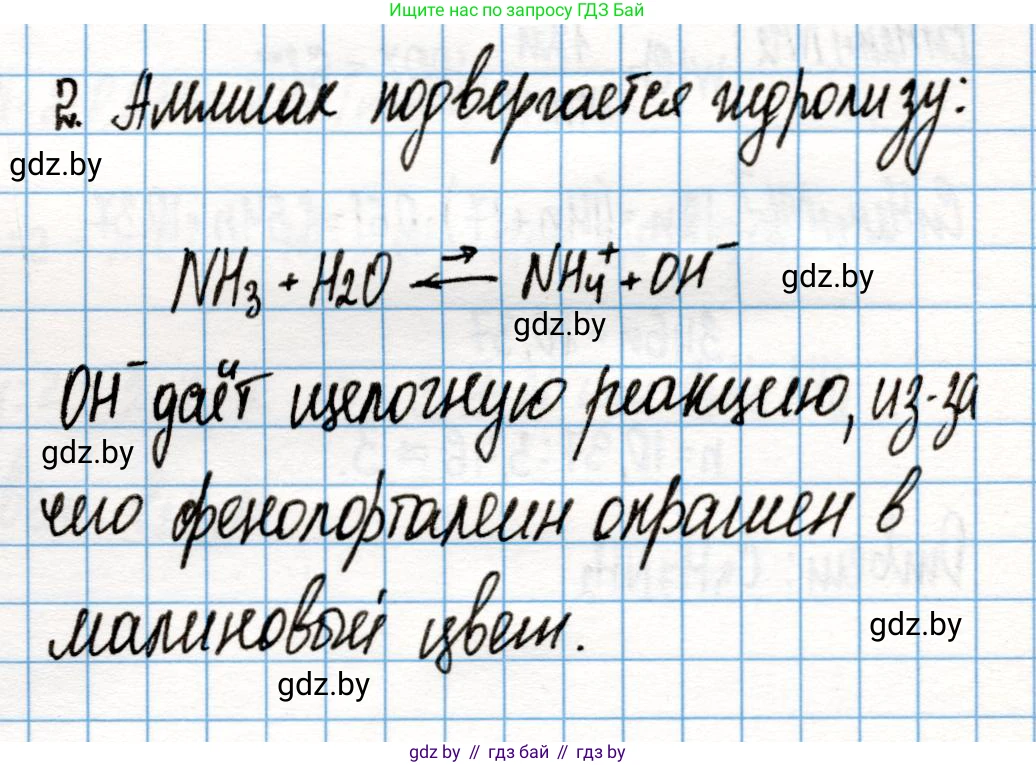 Ищите нас по запросу ГДЗ Бай
2. Аммиак подвергается гидролизу:
gdz.by
NH3 + H2O ⇄ NH4+ + OH− gdz.by
gdz.by
OH− даёт щелочную реакцию, из-за
gdz.by
чего фенолорталеин окрашен в
малиновый цвет. gdz.by
gdz.by
gdz.by // гдз бай // гдз by